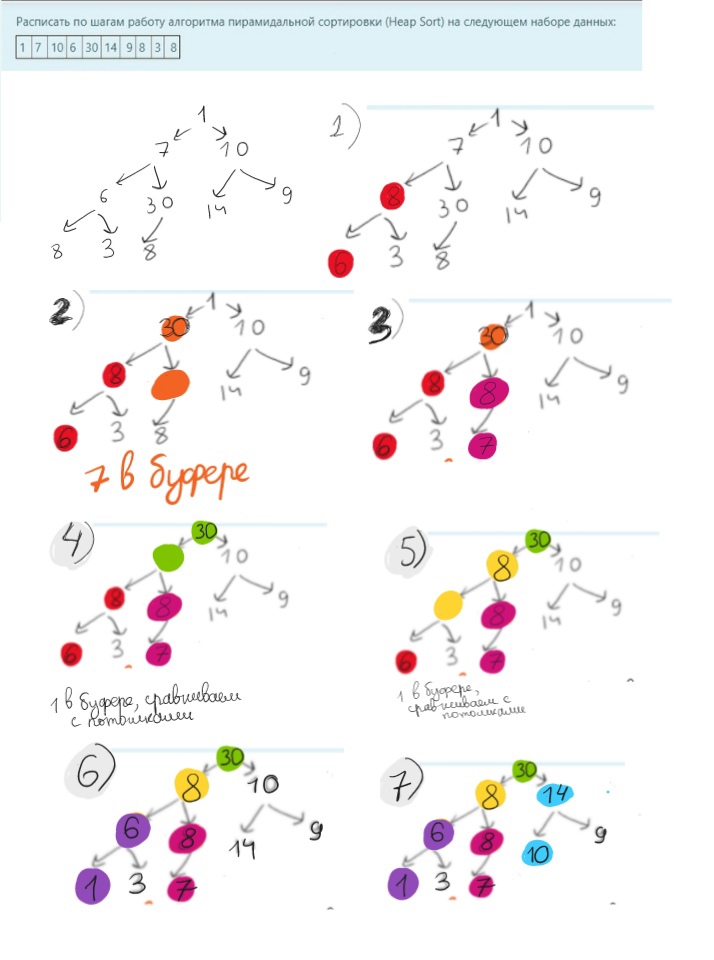 Расписать по шагам работу алгоритма пирамидальной сортировки (Heap Sort) на следующем наборе данных:
1 7 10 6 30 14 9 8 3 8
1
7 10
6 30 14 9
8 3 8
1)
1
7 10
8 30 14 9
6 3 8
2)
1
30 10
8 14 9
6 3 8
7 в буфере
3)
1
30 10
8 8 14 9
6 3 7
4)
30
10
8 8 14 9
6 3 7
1 в буфере, сравниваем
с потомками
5)
30
8 10
8 14 9
6 3 7
1 в буфере,
сравниваем с
потомками
6)
30
8 10
6 8 14 9
1 3 7
7)
30
8 14
6 8 10 9
1 3 7